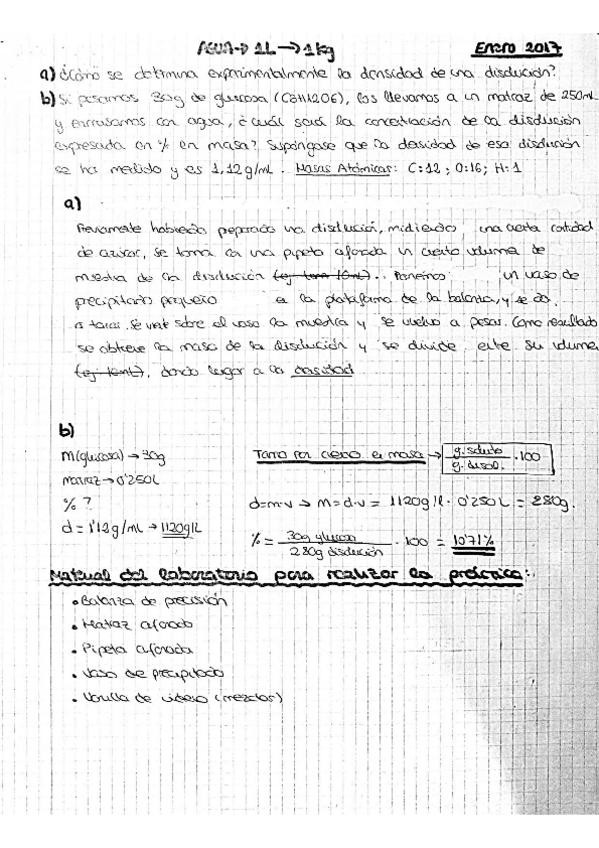 AGUA→ 1L → 1kg Enero 2017
a) ¿Cómo se determina experimentalmente la densidad de una disolución?
b) Si pesamos 30g de glucosa (C6H12O6), los llevamos a un matraz de 250mL
y enrasamos con agua, ¿cuál será la concentración de la disolución
expresada en % en masa? Supóngase que la densidad de esa disolución
se ha medido y es 1,12g/mL. Masas Atómicas: C:12; O:16; H:1
a)
Previamente habiendo preparado una disolución, midiendo una cierta cantidad
de azúcar, se toma con una pipeta aforada un cierto volumen de
muestra de la disolución (ej tomo 10mL). Ponemos un vaso de
precipitado pequeño en la plataforma de la balanza, y se da
a tarar. Se vierte sobre el vaso la muestra y se vuelve a pesar. Como resultado
se obtiene la masa de la disolución y se divide entre su volumen
, dando lugar a la densidad
b)
m(glucosa) → 30g Tanto por ciento en masa → g. soluto / g. disol. · 100
matraz → 0'250L
% ? d=m·v → m=d·v = 1120g/L · 0'250L = 280g.
d = 1'12g/mL → 1120g/L
% = 30g glucosa / 280g disolución · 100 = 10'71%
Material del laboratorio para realizar la práctica:
• Balanza de precisión
• Matraz aforado
• Pipeta aforada
• Vaso de precipitado
• Varilla de vidrio (mezclar)